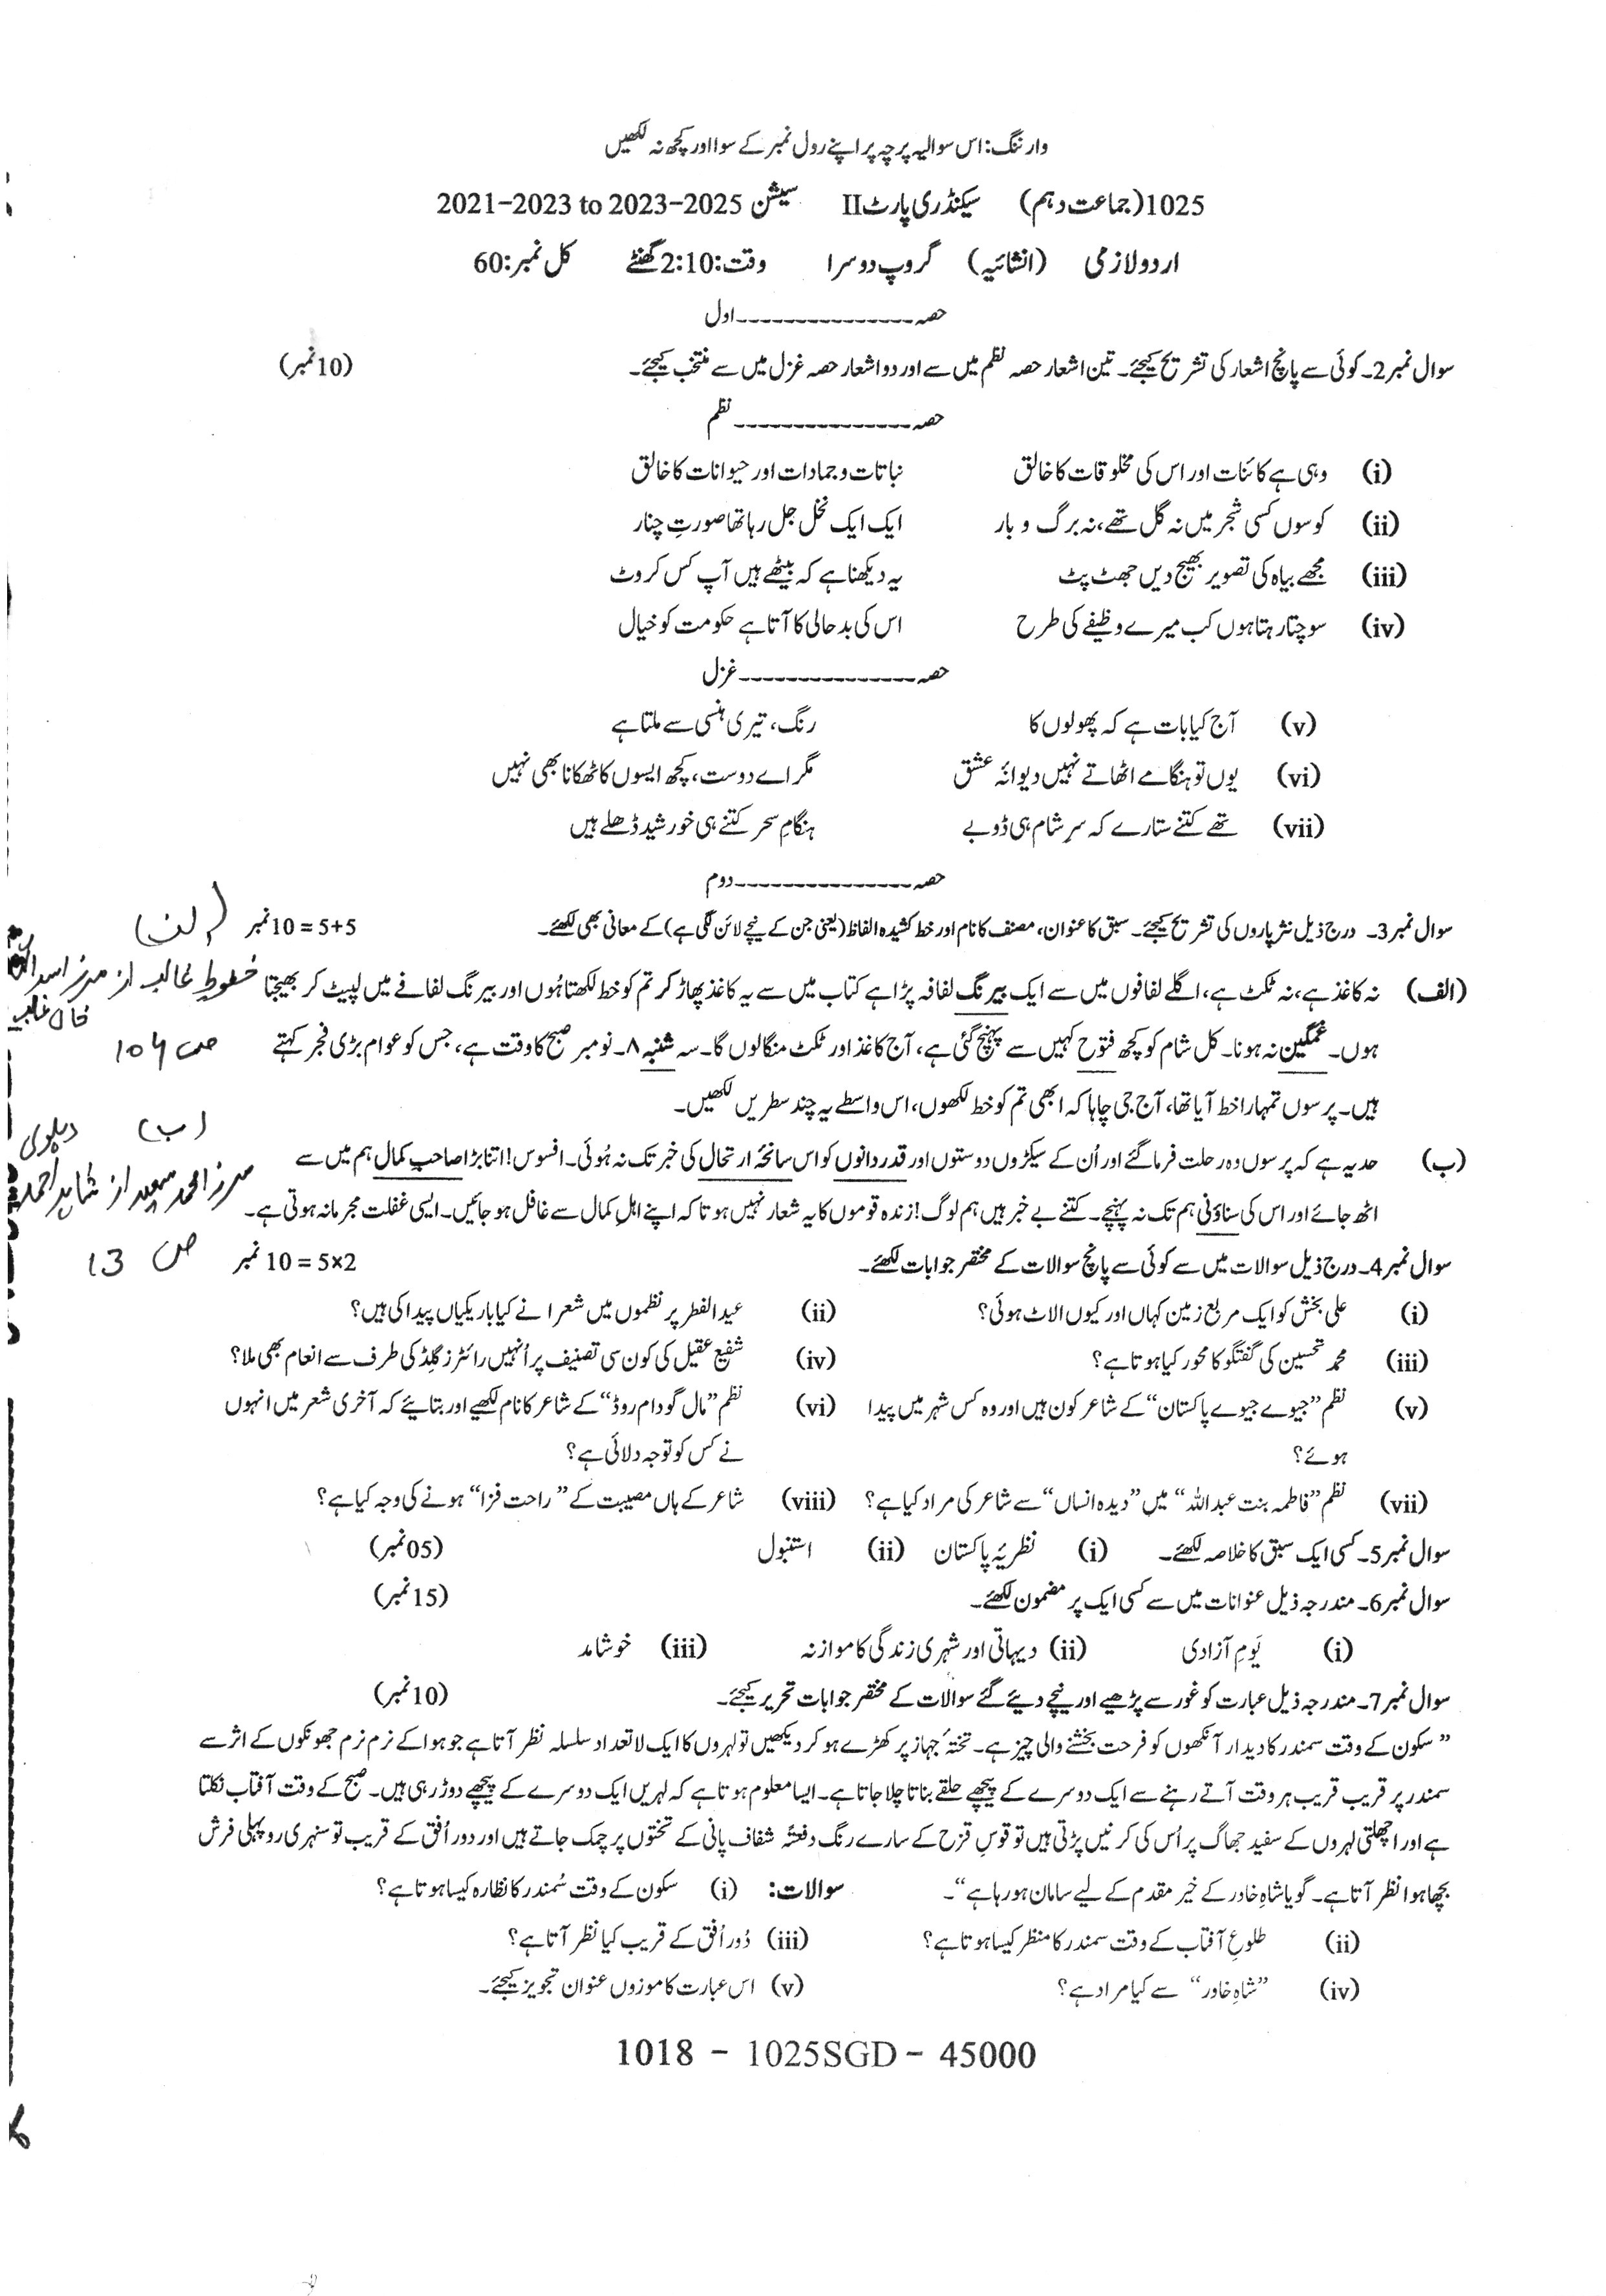 وارننگ: اس سوالیہ پرچہ پر اپنے رول نمبر کے سوا اور کچھ نہ لکھیں
1025 (جماعت دہم) سیکنڈری پارٹ II سیشن 2021-2023 to 2023-2025
اردو لازمی (انشائیہ) گروپ دوسرا وقت: 2:10 گھنٹے کل نمبر: 60
حصہ ---------------- اول
سوال نمبر 2۔ کوئی سے پانچ اشعار کی تشریح کیجئے۔ تین اشعار حصہ نظم میں سے اور دو اشعار حصہ غزل میں سے منتخب کیجئے۔ (10 نمبر)
حصہ ---------------- نظم
(i) وہی ہے کائنات اور اس کی مخلوقات کا خالق نباتات و جمادات اور حیوانات کا خالق
(ii) کوسوں کسی شجر میں نہ گل تھے، نہ برگ و بار ایک ایک نخل جل رہا تھا صورتِ چنار
(iii) مجھے بیاہ کی تصویر بھیج دیں جھٹ پٹ یہ دیکھنا ہے کہ بیٹھے ہیں آپ کس کروٹ
(iv) سوچتا رہتا ہوں کب میرے وظیفے کی طرح اس کی بدحالی کا آتا ہے حکومت کو خیال
حصہ ---------------- غزل
(v) آج کیا بات ہے کہ پھولوں کا رنگ، تیری ہنسی سے ملتا ہے
(vi) یوں تو ہنگامے اٹھاتے نہیں دیوانۂ عشق مگر اے دوست، کچھ ایسوں کا ٹھکانا بھی نہیں
(vii) تھے کتنے ستارے کہ سرِ شام ہی ڈوبے ہنگامِ سحر کتنے ہی خورشید ڈھلے ہیں
حصہ ---------------- دوم
سوال نمبر 3۔ درج ذیل نثر پاروں کی تشریح کیجئے۔ سبق کا عنوان، مصنف کا نام اور خط کشیدہ الفاظ (یعنی جن کے نیچے لائن لگی ہے) کے معانی بھی لکھئے۔ 5+5 = 10 نمبر
(الف) نہ کاغذ ہے، نہ ٹکٹ ہے، اگلے لفافوں میں سے ایک بیرنگ لفافہ پڑا ہے کتاب میں سے یہ کاغذ پھاڑ کر تم کو خط لکھتا ہُوں اور بیرنگ لفافے میں لپیٹ کر بھیجتا
ہوں۔ غمگین نہ ہونا۔ کل شام کو کچھ فتوح کہیں سے پہنچ گئی ہے، آج کاغذ اور ٹکٹ منگالوں گا۔ سہ شنبہ ۸۔ نومبر صبح کا وقت ہے، جس کو عوام بڑی فجر کہتے
ہیں۔ پرسوں تمہارا خط آیا تھا، آج جی چاہا کہ ابھی تم کو خط لکھوں، اس واسطے یہ چند سطریں لکھیں۔
(ب) حد یہ ہے کہ پرسوں وہ رحلت فرما گئے اور اُن کے سیکڑوں دوستوں اور قدر دانوں کو اس سانحۂ ارتحال کی خبر تک نہ ہُوئی۔ افسوس! اتنا بڑا صاحبِ کمال ہم میں سے
اٹھ جائے اور اس کی سناؤنی ہم تک نہ پہنچے۔ کتنے بے خبر ہیں ہم لوگ! زندہ قوموں کا یہ شعار نہیں ہوتا کہ اپنے اہلِ کمال سے غافل ہو جائیں۔ ایسی غفلت مجرمانہ ہوتی ہے۔
(الف)
خطوطِ غالب از مرزا اسد اللہ
خاں غالب
ص 104
(ب)
مرزا محمد سعید از شاہد احمد
دہلوی
ص 13
سوال نمبر 4۔ درج ذیل سوالات میں سے کوئی سے پانچ سوالات کے مختصر جوابات لکھئے۔ 5×2 = 10 نمبر
(i) علی بخش کو ایک مربع زمین کہاں اور کیوں الاٹ ہوئی؟ (ii) عید الفطر پر نظموں میں شعرا نے کیا باریکیاں پیدا کی ہیں؟
(iii) محمد تحسین کی گفتگو کا محور کیا ہوتا ہے؟ (iv) شفیع عقیل کی کون سی تصنیف پر اُنہیں رائٹرز گِلڈ کی طرف سے انعام بھی ملا؟
(v) نظم ”جیوے جیوے پاکستان“ کے شاعر کون ہیں اور وہ کس شہر میں پیدا ہوئے؟
(vi) نظم ”مال گودام روڈ“ کے شاعر کا نام لکھیے اور بتائیے کہ آخری شعر میں انہوں نے کس کو توجہ دلائی ہے؟
(vii) نظم ”فاطمہ بنت عبد اللہ“ میں ”دیدہ انساں“ سے شاعر کی مراد کیا ہے؟ (viii) شاعر کے ہاں مصیبت کے ”راحت فزا“ ہونے کی وجہ کیا ہے؟
سوال نمبر 5۔ کسی ایک سبق کا خلاصہ لکھئے۔ (i) نظریۂ پاکستان (ii) استنبول (05 نمبر)
سوال نمبر 6۔ مندرجہ ذیل عنوانات میں سے کسی ایک پر مضمون لکھئے۔ (15 نمبر)
(i) یَومِ آزادی (ii) دیہاتی اور شہری زندگی کا موازنہ (iii) خوشامد
سوال نمبر 7۔ مندرجہ ذیل عبارت کو غور سے پڑھیے اور نیچے دیئے گئے سوالات کے مختصر جوابات تحریر کیجئے۔ (10 نمبر)
”سکون کے وقت سمندر کا دیدار آنکھوں کو فرحت بخشنے والی چیز ہے۔ تختۂ جہاز پر کھڑے ہو کر دیکھیں تو لہروں کا ایک لاتعداد سلسلہ نظر آتا ہے جو ہوا کے نرم نرم جھونکوں کے اثر سے
سمندر پر قریب قریب ہر وقت آتے رہنے سے ایک دوسرے کے پیچھے حلقے بناتا چلا جاتا ہے۔ ایسا معلوم ہوتا ہے کہ لہریں ایک دوسرے کے پیچھے دوڑ رہی ہیں۔ صبح کے وقت آفتاب نکلتا
ہے اور اچھلتی لہروں کے سفید جھاگ پر اُس کی کرنیں پڑتی ہیں تو قوسِ قزح کے سارے رنگ دفعتہً شفاف پانی کے تختوں پر چمک جاتے ہیں اور دور اُفق کے قریب تو سنہری روپہلی فرش
بچھا ہوا نظر آتا ہے۔ گویا شاہِ خاور کے خیر مقدم کے لیے سامان ہو رہا ہے“۔ سوالات: (i) سکون کے وقت سُمندر کا نظارہ کیسا ہوتا ہے؟
(ii) طلوعِ آفتاب کے وقت سمندر کا منظر کیسا ہوتا ہے؟ (iii) دُور اُفق کے قریب کیا نظر آتا ہے؟
(iv) ”شاہِ خاور“ سے کیا مراد ہے؟ (v) اس عبارت کا موزوں عنوان تجویز کیجئے۔
1018 - 1025SGD - 45000